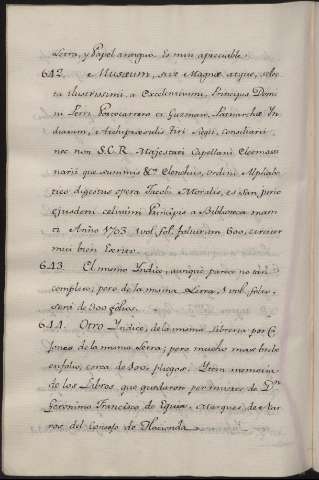 Letra, y Papel antiguo. Es mui apreciable.
642. Musæum, sive Magnæ atque, selec
ta ilustrissimi, a Excelentissimi, Principis Domi
ni Petri Portocarrero et Guzman, Patriarchæ In
diarum, et Archipræsulis Tiri Regii, Consiliarii
nec non S.C.R. Majestati Capellani Eleemosi
narii que summus &ª Elenchus, ordine Alphabe
tico digestus opera Jacobi Moralis, es
ejusdem celsissimi Principis a Bibliotheca
Año 1703. 1 vol. fol. foliorum 600, circiter
mui bien Escrito.
643. El mismo Yndice, aunque parece no tan
completo; pero de la misma Letra, 1 vol. folio,
será de 300 folios.
644. Otro Yndice, de la misma Libreria por C
de la misma Letra; pero mucho mas breve
en folio, cerca de 100. pliegos. Yten memoria
de los Libros que quedaron por muerte de Dn
Geronimo Francisco de Eguia, Marques de Nar
ros del Consejo de Hacienda.